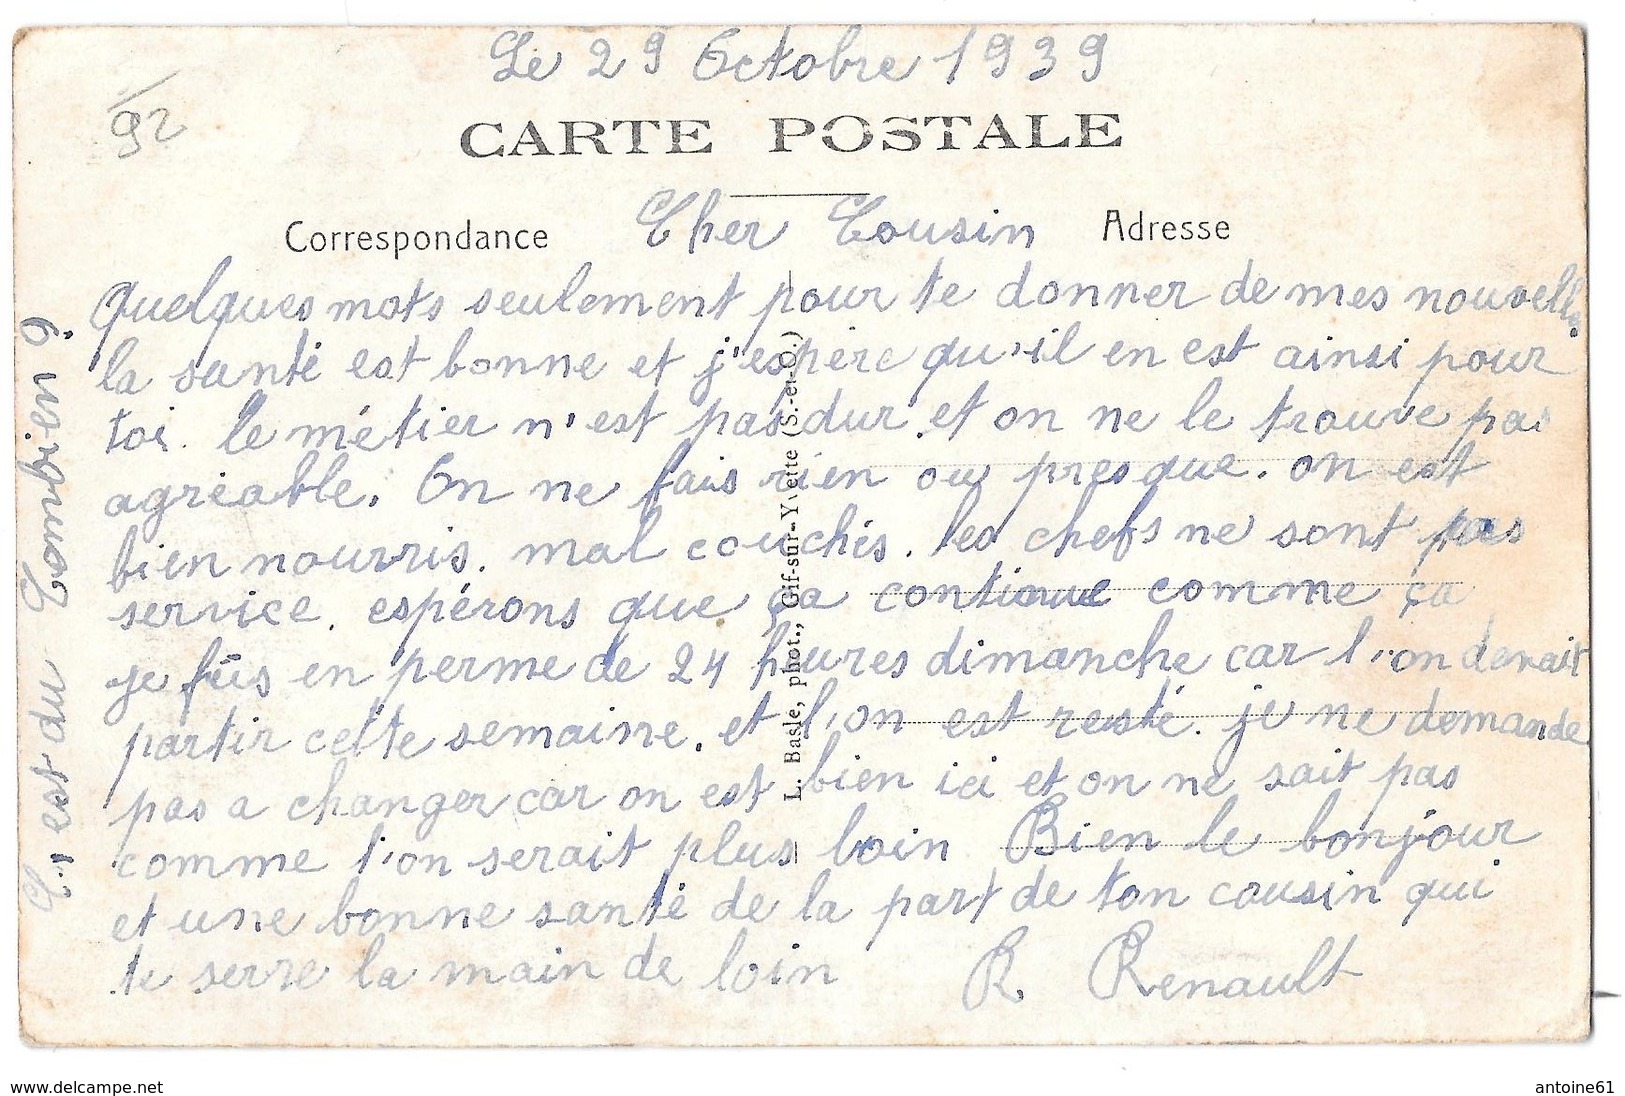 Le 29 Octobre 1939
92
CARTE POSTALE
Correspondance
Cher Cousin
Adresse
quelques mots seulement pour te donner de mes nouvelles
la santé est bonne et j'espère qu'il en est ainsi pour
toi. le métier n'est pas dur et on ne le trouve pas
agréable. On ne fais rien ou presque. on est
bien nourris. mal couchés. les chefs ne sont pas
service. espérons que ça continue comme ça
je fus en perme de 24 heures dimanche car l'on devait
partir cette semaine. et l'on est resté. je ne demande
pas a changer car on est bien ici et on ne sait pas
comme l'on serait plus loin Bien le bonjour
et une bonne santé de la part de ton cousin qui
te serre la main de loin R. Renault
C'est du
L. Basle, phot., Gif-sur-Yvette (S.-et-O.)
www.delcampe.net
antoine61